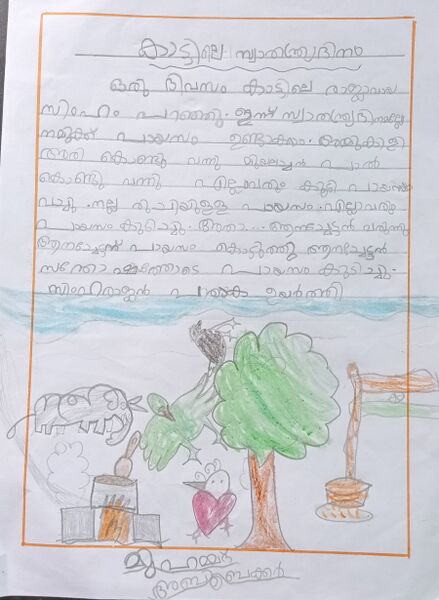 കാട്ടിലെ സ്വാതന്ത്ര്യദിനം
ഒരു ദിവസം കാട്ടിലെ രാജാവായ
സിംഹം പറഞ്ഞു. ഇന്ന് സ്വാതന്ത്ര്യദിനമല്ലേ
നമുക്ക് പായസം ഉണ്ടാക്കാം.
അരി കൊണ്ടു വന്നു മുയലച്ചൻ പാൽ
കൊണ്ടു വന്നു എല്ലാവരും കൂടി പായസം
വച്ചു. നല്ല രുചിയുള്ള പായസം. എല്ലാവരും
പായസം കുടിച്ചു. അതാ... ആനച്ചേട്ടൻ വരുന്നു
ആനച്ചേട്ടന് പായസം കൊടുത്തു ആനച്ചേട്ടൻ
സന്തോഷത്തോടെ പായസം കുടിച്ചു.
സിംഹരാജൻ പതാക ഉയർത്തി
മുഹമ്മദ്
അബൂബക്കർ